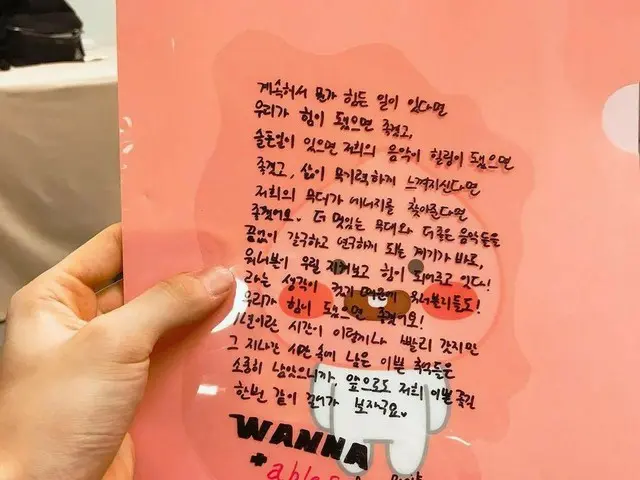 계속해서 뭔가 힘든 일이 있다면
우리가 힘이 됐으면 좋겠고,
슬픈일이 있으면 저희의 음악이 힐링이 됐으면
좋겠고, 삶이 무기력하게 느껴지신다면
저희의 무대가 에너지를 찾아준다면
좋겠어요. 더 멋있는 무대와 더 좋은 음악들을
끝없이 갈구하고 연구하게 되는 계기가 바로,
워너블이 우릴 지켜보고 힘이 되어주고 있다!
라는 생각이 컸기 때문에 워너블분들도!
우리가 힘이 됐으면 좋겠어요!
1년이란 시간이 이렇게나 빨리 갔지만
그 지나간 시간 속에 남은 이쁜 추억들은
소중히 남았으니까, 앞으로도 저희 이쁜 꽃길
한번 같이 걸어가 보자구요.
WANNA
able